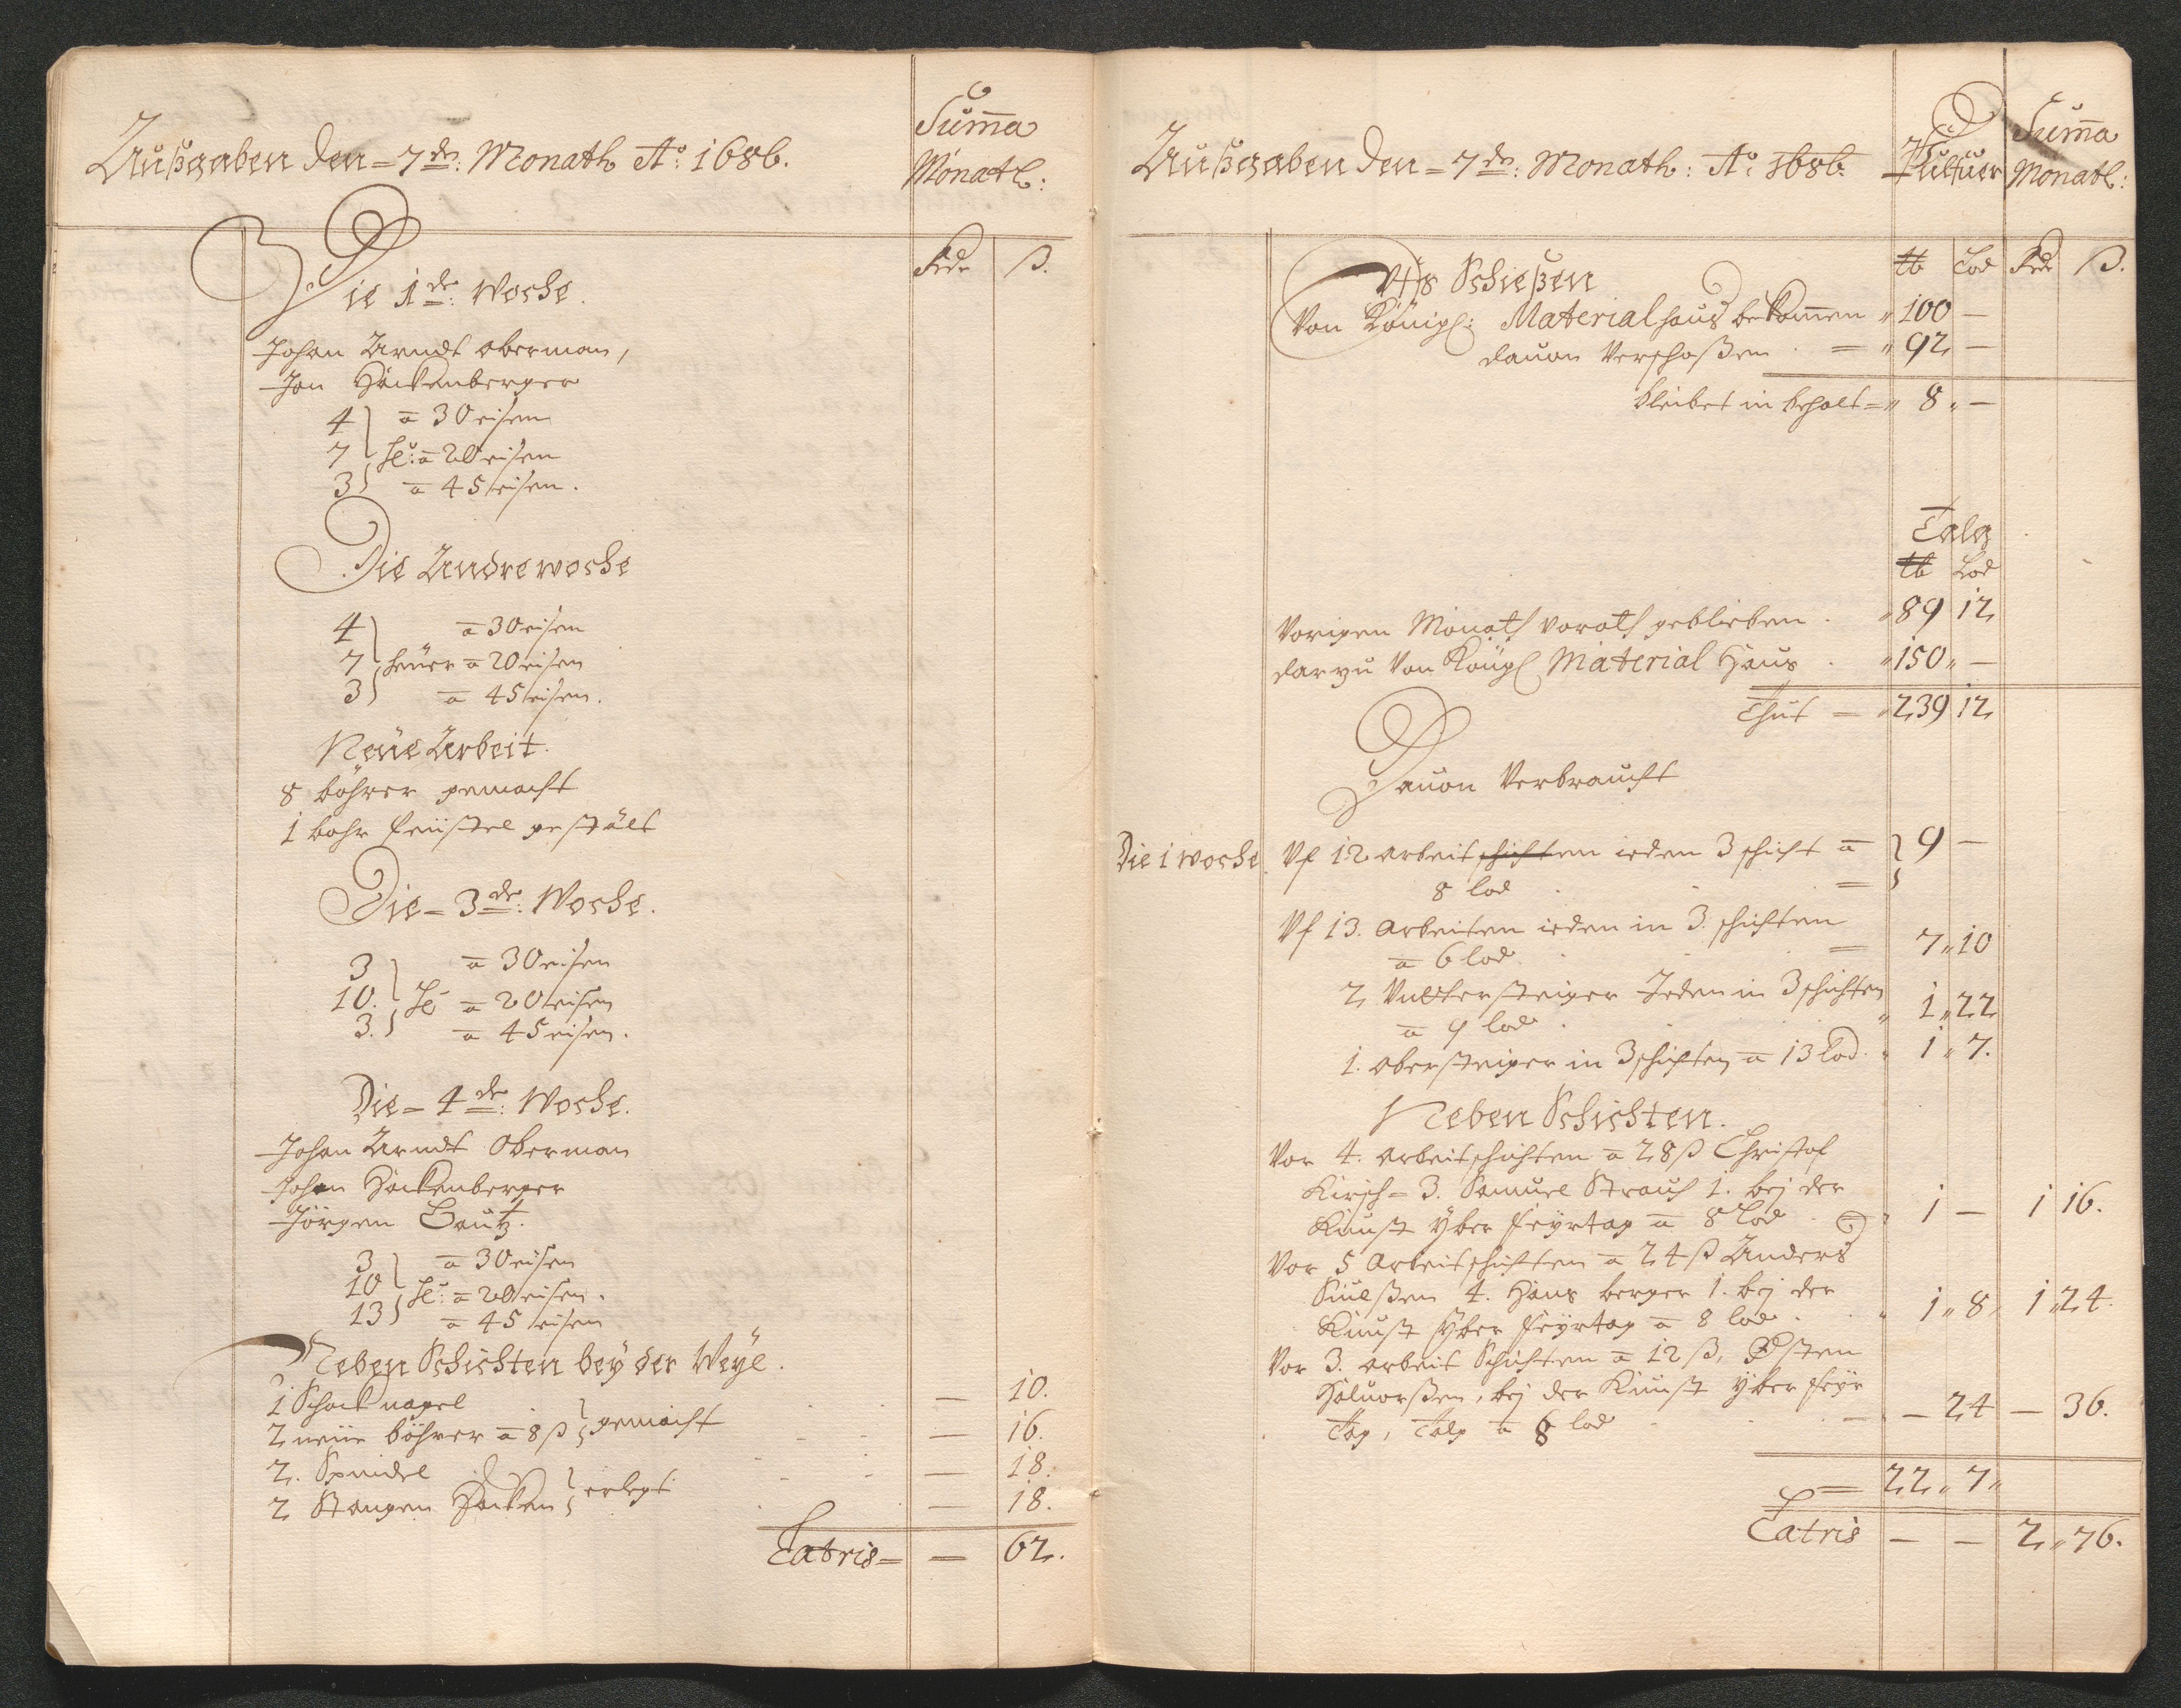 Außgaben den = 7de: Monath Ao: 1686.
Summa
Monatl:
Rdr ß.
Die 1de: Woche.
Johan Arndt oberman,
Jon Hackenberger
4 a 30 eisen
7 fe: a 20 eisen
3 a 45 eisen.
Die Andre woche
4 a 30 eisen
7 feüer a 20 eisen
3 a 45 eisen.
Neüe Arbeit.
8 böhrer gemacht
1 bohr feüstel gestält
Die = 3de: Woche.
3 a 30 eisen
10. fe a 20 eisen
3. a 45 eisen.
Die = 4de: Woche.
Johan Arndt Oberman
Johan Hackenberger
Jörgen Bautz.
3 a 30 eisen
10 fe: a 20 eisen.
13 a 45 eisen
Neben Schichten beÿ der Weÿl.
1 Schock nagel — 10.
2 neüe böhrer a 8 ß gemacht — 16.
2. Spindel — 18.
2 Stangen Hacken erlegt — 18.
Latris = — 62.
Außgaben den = 7de: Monath: Ao 1686.
Pulfuer
Summa
Monatl:
Vfs Schießen
lb Lod Rdr ß.
Von Königl: Materialhaus bekommen " 100 —
dauon Verschoßen = " 92 —
bleibet in behalt = " 8 " —
Talg
lb Lod
Vorigen Monath vorath geblieben " 89 12
darzu Von Königl Material Haus " 150 " —
Thut = " 239 12
Dauon Verbraucht
Die 1 woche Vf 12 arbeitschichten ieden 3 schicht a 9 —
8 lod =
Vf 13. Arbeiten ieden in 3. schichten
a 6 lod = 7 " 10
2 Vntersteiger Jeden in 3 schichten
a 9 lod " 1 " 22
1. obersteiger in 3 schichten a 13 Lod " 1 " 7.
Neben Schichten.
Vor 4. arbeitschichten a 28 ß Christof
Kirsch = 3. Samuel Strauch 1. bej der
Kunst ÿber feÿrtag a 8 Lod = " 1 — 1 16.
Vor 5 Arbeitschichten a 24 ß Anders
4. Hans berger 1. bej der
Kunst ÿber feÿrtag a 8 lod " 1 " 8 " 1 " 24.
Vor 3. arbeit Schichten a 12 ß, Østen
Haluorßen, bej der Kunst ÿber feÿr
Tag, Talg a 8 lod — — 24 — 36.
= 22 " 7 "
Latris — — 2 " 76.